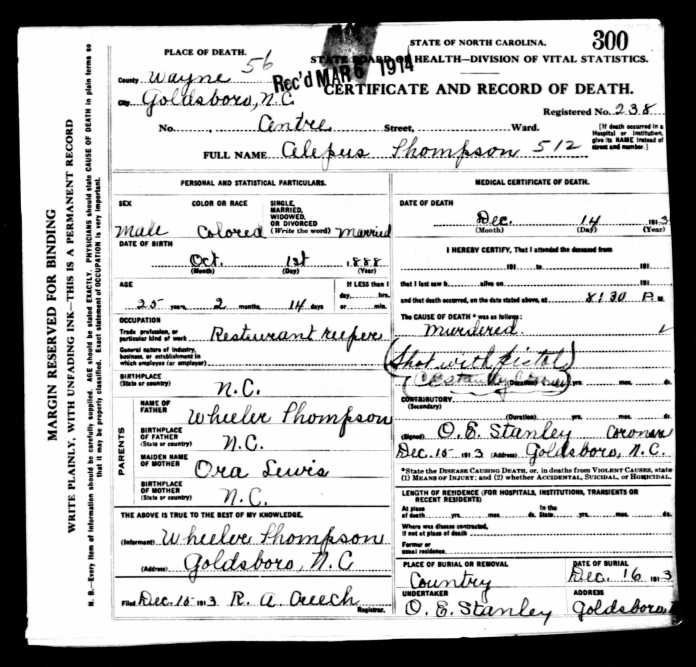 STATE OF NORTH CAROLINA. 300
PLACE OF DEATH. 56
STATE BOARD OF HEALTH—DIVISION OF VITAL STATISTICS.
Rec'd MAR 6 1914
County Wayne
CERTIFICATE AND RECORD OF DEATH.
City Goldsboro, N.C.
Registered No. 238
No. Centre Street, Ward.
[If death occurred in a Hospital or Institution, give its NAME instead of street and number.]
FULL NAME Thompson 512
MARGIN RESERVED FOR BINDING
WRITE PLAINLY, WITH UNFADING INK—THIS IS A PERMANENT RECORD
N. B.—Every item of information should be carefully supplied. AGE should be stated EXACTLY. PHYSICIANS should state CAUSE OF DEATH in plain terms so
that it may be properly classified. Exact statement of OCCUPATION is very important.
PERSONAL AND STATISTICAL PARTICULARS.
SEX
Male
COLOR OR RACE
Colored
SINGLE,
MARRIED,
WIDOWED,
OR DIVORCED
(Write the word) married
DATE OF BIRTH
Oct. 1st 1888
(Month) (Day) (Year)
AGE
If LESS than 1
day, hrs.
25 years 2 months 14 days or min.
OCCUPATION
Trade, profession, or
particular kind of work Resturant keeper
General nature of industry,
business, or establishment in
which employee (or employer)
BIRTHPLACE
(State or country) N.C.
PARENTS
NAME OF
FATHER Wheeler Thompson
BIRTHPLACE
OF FATHER
(State or country) N.C.
MAIDEN NAME
OF MOTHER Ora Lewis
BIRTHPLACE
OF MOTHER
(State or country) N.C.
THE ABOVE IS TRUE TO THE BEST OF MY KNOWLEDGE.
(Informant) Wheeler Thompson
(Address) Goldsboro, N.C
Filed Dec. 15 1913 R. A. Creech
Registrar.
MEDICAL CERTIFICATE OF DEATH.
DATE OF DEATH
Dec. 14 1913
(Month) (Day) (Year)
I HEREBY CERTIFY, That I attended the deceased from
191 to 191
that I last saw h alive on 191
and that death occurred, on the date stated above, at 8:30 P. M.
The CAUSE OF DEATH * was as follows:
Murdered
Shot with pistol
(Duration) yrs. mos. ds.
CONTRIBUTORY
(Secondary)
(Duration) yrs. mos. ds.
(Signed) O. E. Stanley Coroner
Dec. 15 1913 (Address) Goldsboro, N.C.
*State the DISEASE CAUSING DEATH, or, in deaths from VIOLENT CAUSES, state
(1) MEANS OF INJURY; and (2) whether ACCIDENTAL, SUICIDAL, or HOMICIDAL.
LENGTH OF RESIDENCE (FOR HOSPITALS, INSTITUTIONS, TRANSIENTS OR
RECENT RESIDENTS)
At place In the
of death yrs. mos. ds. State yrs. mos. ds.
Where was disease contracted,
if not at place of death
Former or
usual residence
PLACE OF BURIAL OR REMOVAL
Country
DATE OF BURIAL
Dec. 16 1913
UNDERTAKER
O. E. Stanley
ADDRESS
Goldsboro